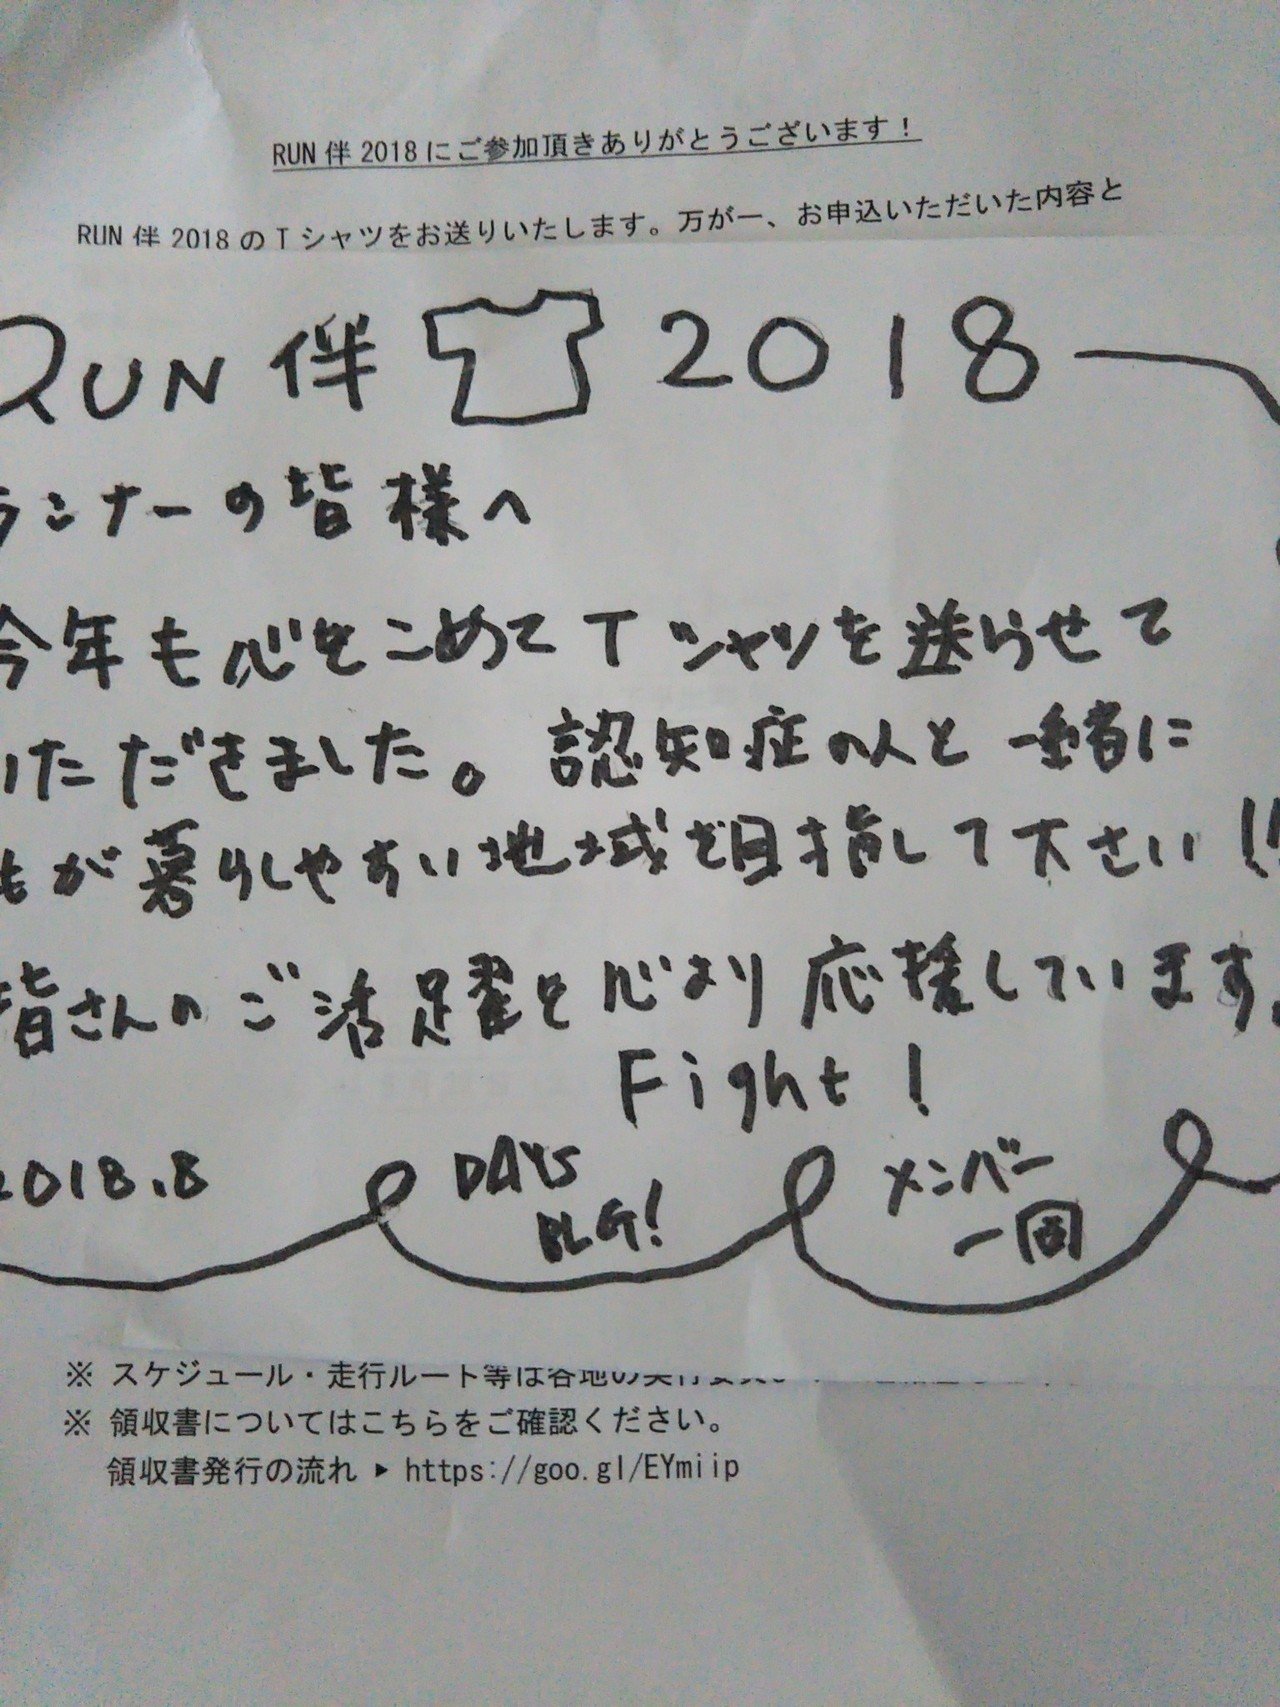 RUN伴2018にご参加頂きありがとうございます！
RUN伴2018のTシャツをお送りいたします。万が一、お申込いただいた内容と
RUN伴 2018
ランナーの皆様へ
今年も心をこめてTシャツを送らせて
いただきました。認知症の人と一緒に
もが暮らしやすい地域を目指して下さい!!
皆さんのご活躍を心より応援しています。
Fight!
2018.8
DAYS
BLG!
メンバー
一同
※ スケジュール・走行ルート等は各地の
※ 領収書についてはこちらをご確認ください。
領収書発行の流れ ▶ https://goo.gl/EYmiip